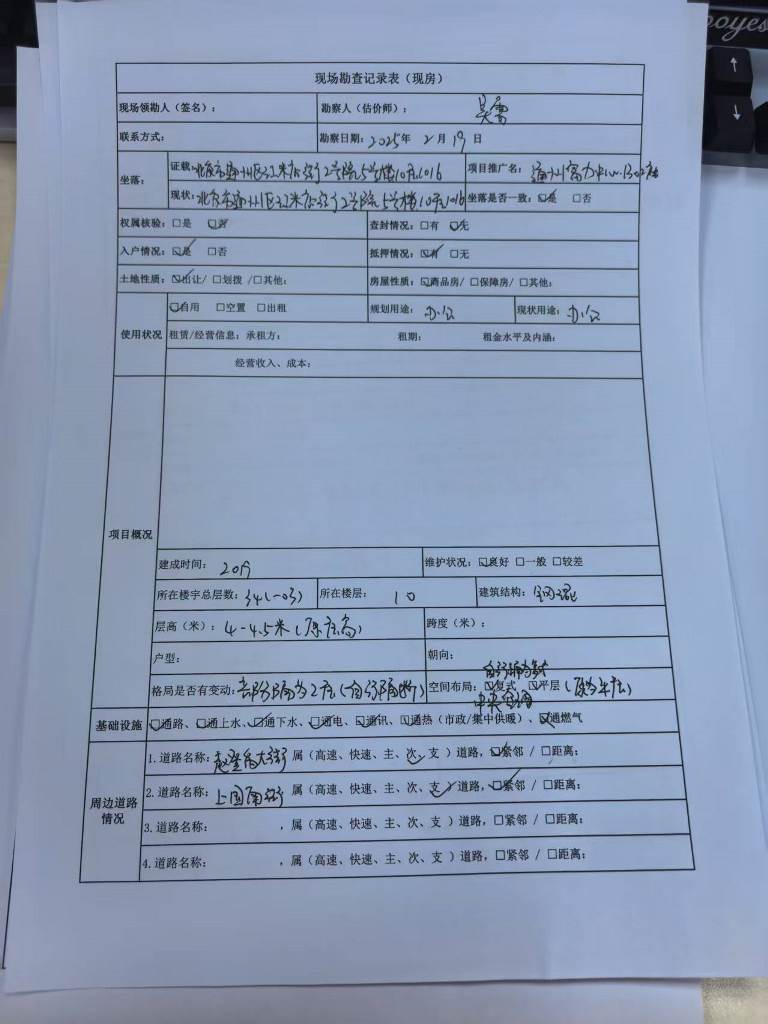 现场勘查记录表（现房）
现场领勘人（签名）： 勘察人（估价师）： 吴雪
联系方式： 勘察日期：2025年 2月 19日
坐落： 证载：北京市通州区 2号院5号楼10层1016 项目推广名：通州富力
现状：北京市通州区 2号院5号楼10层1016 坐落是否一致：☑是 □否
权属核验：□是 ☑否 查封情况：□有 ☑无
入户情况：☑是 □否 抵押情况：☑有 □无
土地性质：☑出让/ □划拨 /□其他： 房屋性质：☑商品房/ □保障房/ □其他：
使用状况 ☑自用 □空置 □出租 规划用途：办公 现状用途：办公
租赁/经营信息：承租方： 租期： 租金水平及内涵：
经营收入、成本：
项目概况
建成时间： 维护状况：☑良好 □一般 □较差
所在楼宇总层数：34(-03) 所在楼层：10 建筑结构：钢混
层高（米）：4-4.5米(原层高) 跨度（米）：
户型： 朝向：
格局是否有变动： 隔为2层( 空间布局：☑复式 ☑平层(
中央空调
基础设施 ☑通路、☑通上水、☑通下水、☑通电、☑通讯、☑通热（市政/集中供暖）、通燃气
周边道路情况 1.道路名称：赵登禹大街 属（高速、快速、主、次、支 ）道路，☑紧邻 / □距离：
2.道路名称：上园南街 属（高速、快速、主、次、支 ）道路，☑紧邻 / □距离：
3.道路名称： ，属（高速、快速、主、次、支 ）道路，□紧邻 / □距离：
4.道路名称： ，属（高速、快速、主、次、支 ）道路，□紧邻 / □距离：